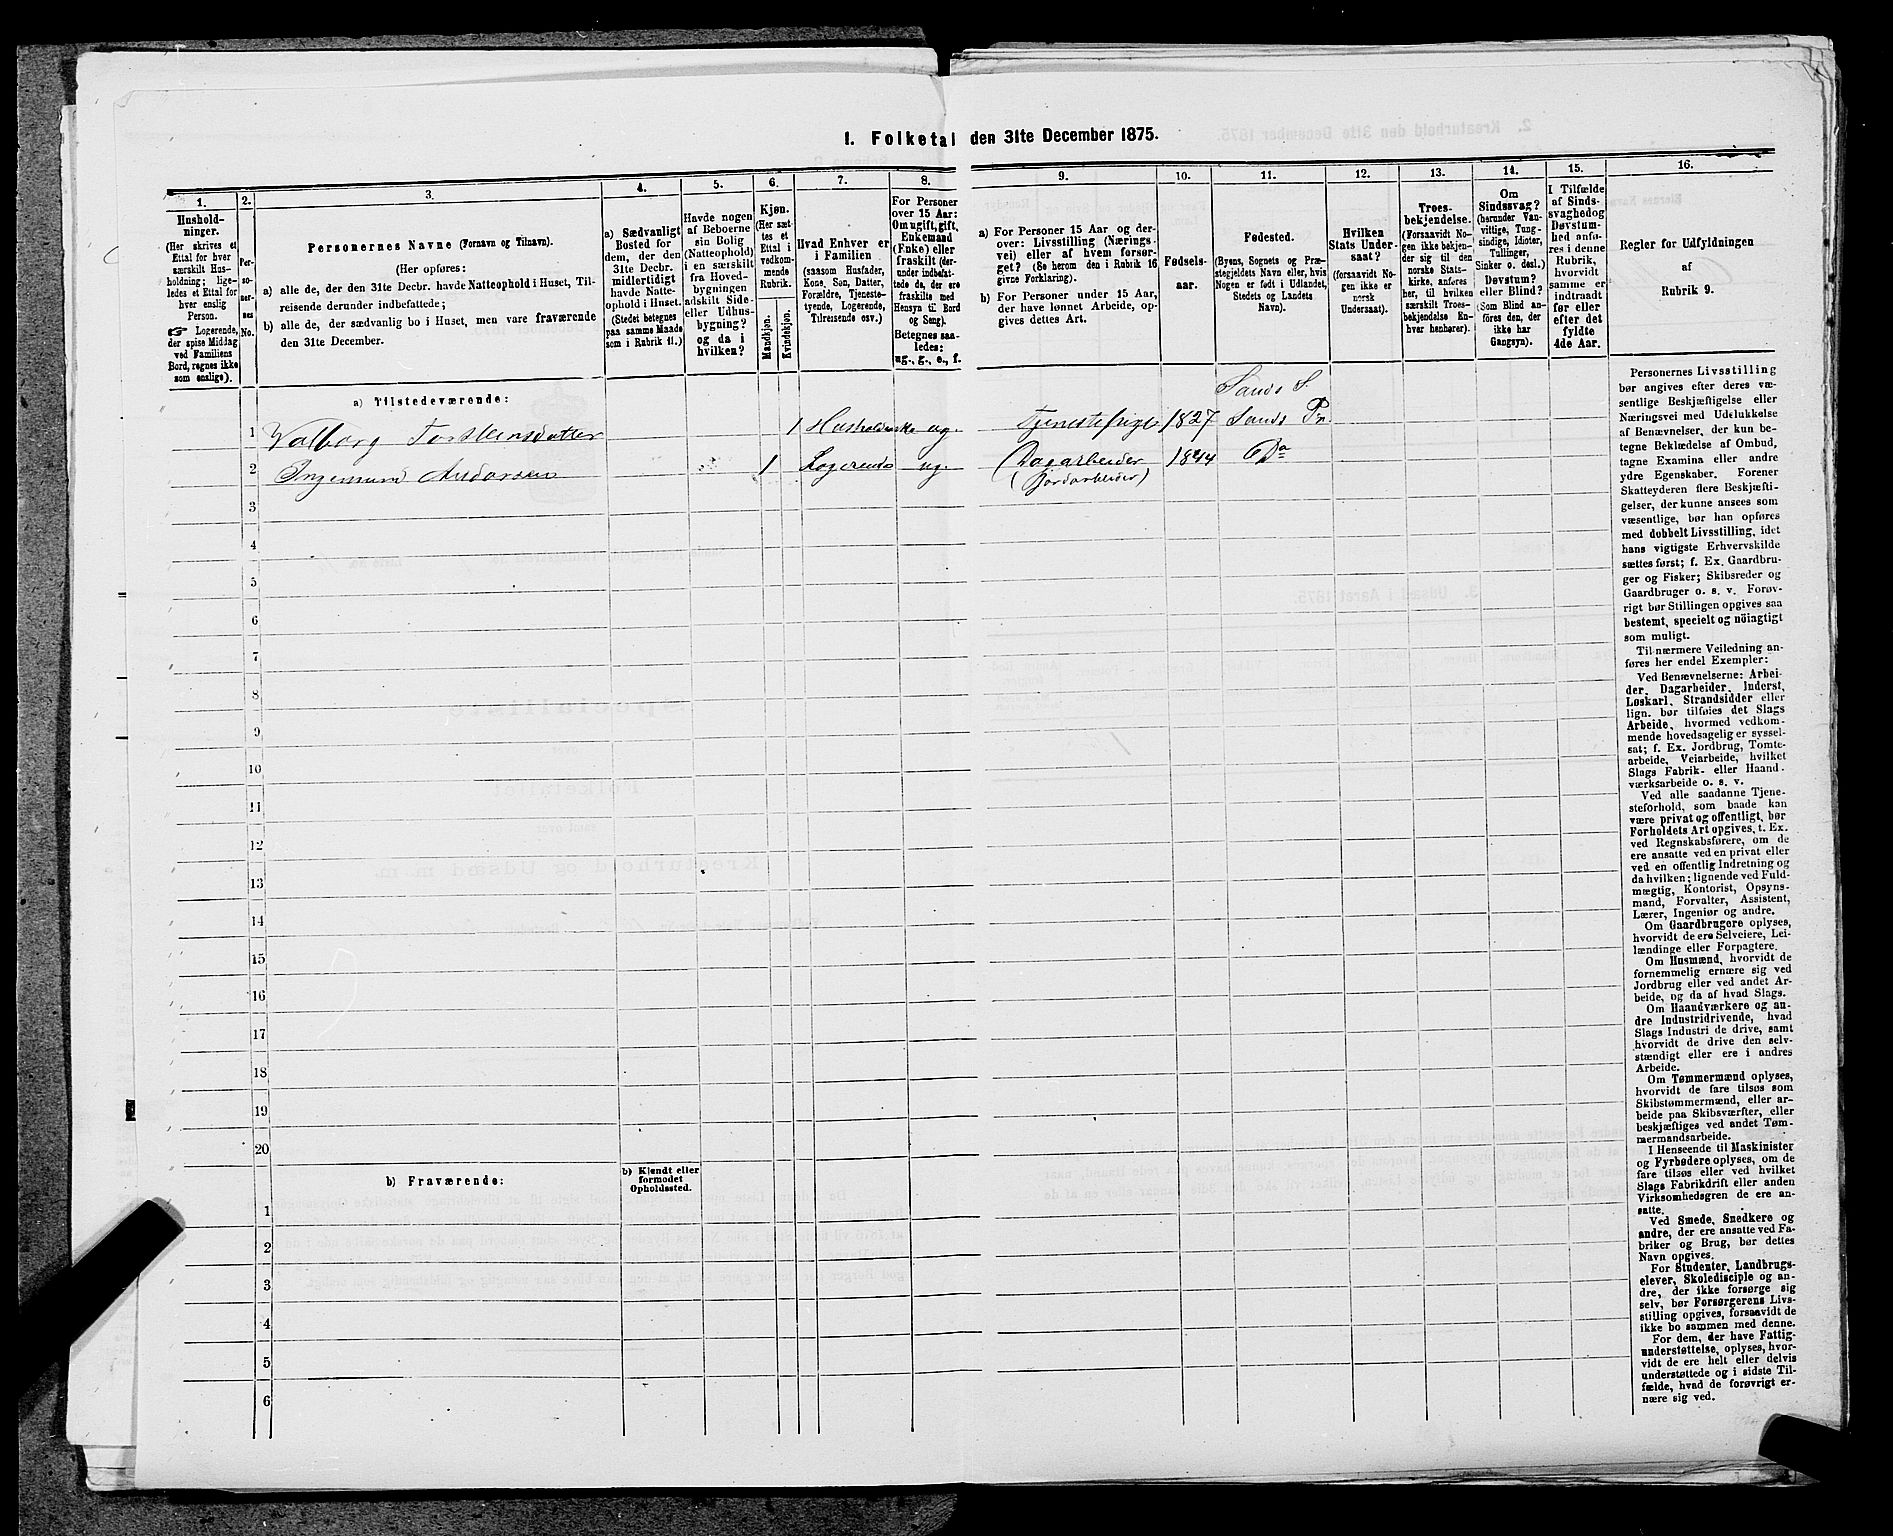 1. Folketal den 31te December 1875.
1.
Hushold-
ninger.
(Her skrives et
Ettal for hver
særskilt Hus-
holdning; lige-
ledes et Ettal for
hver enslig
Person.
☞ Logerende,
der spise Middag
ved Familiens
Bord, regnes ikke
som enslige).
2.
Per-
so-
ner-
nes
No.
3.
Personernes Navne (Fornavn og Tilnavn).
(Her opføres:
a) alle de, der den 31te Decbr. havde Natteophold i Huset, Til-
reisende derunder indbefattede;
b) alle de, der sædvanlig bo i Huset, men vare fraværende
den 31te December.
4.
a) Sædvanligt
Bosted for
dem, der den
31te Decbr.
midlertidigt
havde Natte-
ophold i Huset.
(Stedet betegnes
paa samme Maade
som i Rubrik 11.)
5.
Havde nogen
af Beboerne
sin Bolig
(Natteophold)
i en særskilt
fra Hoved-
bygningen
adskilt Side-
eller Udhus-
bygning?
og da i
hvilken?
6.
Kjøn.
(Her sæt-
tes et
Ettal i
vedkom-
mende
Rubrik.
Mandkjøn.
Kvindekjøn.
7.
Hvad Enhver er
i Familien
(saasom Husfader,
Kone, Søn, Datter,
Forældre, Tjeneste-
tyende, Logerende,
Tilreisende osv.)
8.
For Personer
over 15 Aar:
Om ugift, gift,
Enkemand
(Enke) eller
fraskilt (der-
under indbefat-
tede de, der ere
fraskilte med
Hensyn til Bord
og Seng).
Betegnes saa-
ledes:
ug., g., e., f.
9.
a) For Personer 15 Aar og der-
over: Livsstilling (Nærings-
vei) eller af hvem forsør-
get? (Se herom den i Rubrik 16
givne Forklaring).
b) For Personer under 15 Aar,
der have lønnet Arbeide, op-
gives dettes Art.
10.
Fødsels-
aar.
11.
Fødested.
(Byens, Sognets og Præ-
stegjeldets Navn eller, hvis
Nogen er født i Udlandet,
Stedets og Landets
Navn).
12.
Hvilken
Stats Under-
saat?
(forsaavidt No-
gen ikke er
norsk
Undersaat).
13.
Troes-
bekjendelse.
(Forsaavidt No-
gen ikke bekjen-
der sig til den
norske Stats-
kirke, anføres
her, til hvilken
særskilt Troes-
bekjendelse En-
hver henhører).
14.
Om
Sindssvag?
(herunder Van-
vittige, Tung-
sindige, Idioter,
Tullinger,
Sinker o. desl.)
Døvstum?
eller Blind?
(Som Blind an-
føres den, der
ikke har
Gangsyn).
15.
I Tilfælde
af Sinds-
svaghedog
Døvstum-
hed anfø-
res i denne
Rubrik,
hvorvidt
samme er
indtraadt
før eller
efter det
fyldte
4de Aar.
16.
Regler for Udfyldningen
af
Rubrik 9.
a) Tilstedeværende:
Sands S.
1 Valborg Torstensdatter 1 Husholderske ug. Tjenestepige 1827 Sands Pr.
2 Ingemund Andersen 1 Logerende ug. Dagarbeider 1844 Do
(Jordarbeider)
3
4
5
6
7
8
9
10
11
12
13
14
15
16
17
18
19
20
b) Fraværende:
b) Kjendt eller
formodet
Opholdssted.
1
2
3
4
5
6
Personernes Livsstilling
bør angives efter deres væ-
sentlige Beskjæftigelse eller
Næringsvei med Udelukkelse
af Benævnelser, der kun be-
tegne Beklædelse af Ombud,
tagne Examina eller andre
ydre Egenskaber. Forener
Skatteyderen flere Beskjæfti-
gelser, der kunne ansees som
væsentlige, bør han opføres
med dobbelt Livsstilling, idet
hans vigtigste Erhvervskilde
sættes først; f. Ex. Gaardbru-
ger og Fisker; Skibsreder og
Gaardbruger o. s. v. Forøv-
rigt bør Stillingen opgives saa
bestemt, specielt og nöiagtigt
som muligt.
Til nærmere Veiledning an-
føres her endel Exempler:
Ved Benævnelserne: Arbei-
der, Dagarbeider, Inderst,
Løskarl, Strandsidder eller
lign. bør tilføies det Slags
Arbeide, hvormed vedkom-
mende hovedsagelig er syssel-
sat; f. Ex. Jordbrug, Tomte-
arbeide, Veiarbeide, hvilket
Slags Fabrik- eller Haand-
værksarbeide o. s. v.
Ved alle saadanne Tjene-
steforhold, som baade kan
være privat og offentligt, bør
Forholdets Art opgives, t. Ex.
ved Regnskabsførere, om de
ere ansatte ved en privat eller
ved en offentlig Indretning og
da hvilken; lignende ved Fuld-
mægtig, Kontorist, Opsyns-
mand, Forvalter, Assistent,
Lærer, Ingeniør og andre.
Om Gaardbrugere oplyses,
hvorvidt de ere Selveiere, Lei-
lændinge eller Forpagtere.
Om Husmænd, hvorvidt de
fornemmelig ernære sig ved
Jordbrug eller ved andet Ar-
beide, og da af hvad Slags.
Om Haandværkere og an-
dre Industridrivende, hvad
Slags Industri de drive, samt
hvorvidt de drive den selv-
stændigt eller ere i andres
Arbeide.
Om Tømmermænd oplyses,
hvorvidt de fare tilsøs som
Skibstømmermænd, eller ar-
beide paa Skibsværfter, eller
beskjæftiges ved andet Tøm-
mermandsarbeide.
I Henseende til Maskinister
og Fyrbødere oplyses, om de
fare tilsøs eller ved hvilket
Slags Fabrikdrift eller anden
Virksomhedsgren de ere an-
satte.
Ved Smede, Snedkere og
andre, der ere ansatte ved Fa-
briker og Brug, bør dettes
Navn opgives.
For Studenter, Landbrugs-
elever, Skoledisciple og an-
dre, der ikke forsørge sig
selv, bør Forsørgerens Livs-
stilling opgives, forsaavidt de
ikke bo sammen med denne.
For dem, der have Fattig-
understøttelse, oplyses, hvor-
vidt de ere helt eller delvis
understøttede og i sidste Til-
fælde, hvad de forøvrigt er-
nære sig ved.